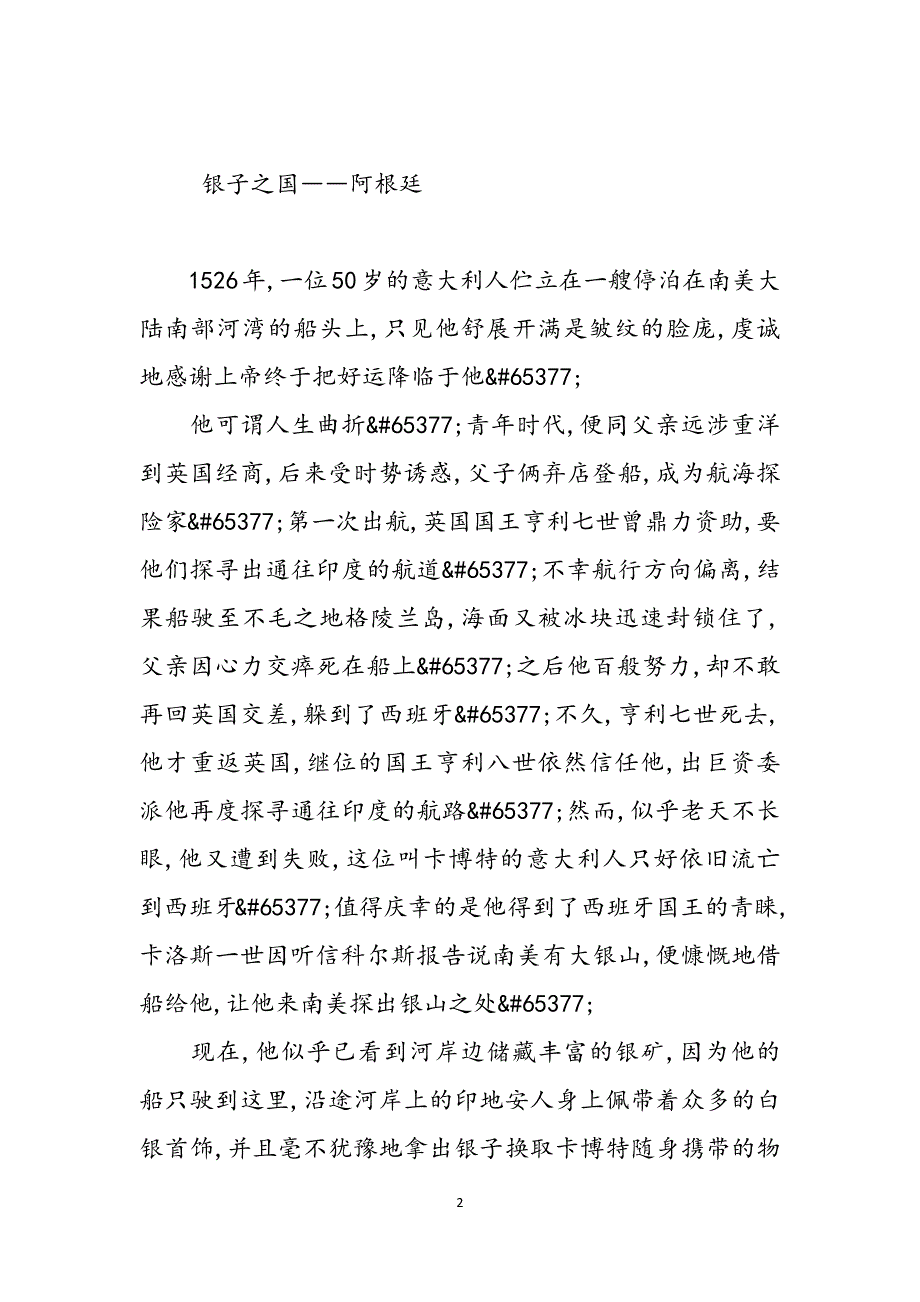 银子之国——阿根廷
1526年,一位50岁的意大利人伫立在一艘停泊在南美大
陆南部河湾的船头上,只见他舒展开满是皱纹的脸庞,虔诚
地感谢上帝终于把好运降临于他&#65377;
他可谓人生曲折&#65377;青年时代,便同父亲远涉重洋
到英国经商,后来受时势诱惑,父子俩弃店登船,成为航海探
险家&#65377;第一次出航,英国国王亨利七世曾鼎力资助,要
他们探寻出通往印度的航道&#65377;不幸航行方向偏离,结
果船驶至不毛之地格陵兰岛,海面又被冰块迅速封锁住了,
父亲因心力交瘁死在船上&#65377;之后他百般努力,却不敢
再回英国交差,躲到了西班牙&#65377;不久,亨利七世死去,
他才重返英国,继位的国王亨利八世依然信任他,出巨资委
派他再度探寻通往印度的航路&#65377;然而,似乎老天不长
眼,他又遭到失败,这位叫卡博特的意大利人只好依旧流亡
到西班牙&#65377;值得庆幸的是他得到了西班牙国王的青睐,
卡洛斯一世因听信科尔斯报告说南美有大银山,便慷慨地借
船给他,让他来南美探出银山之处&#65377;
现在,他似乎已看到河岸边储藏丰富的银矿,因为他的
船只驶到这里,沿途河岸上的印地安人身上佩带着众多的白
银首饰,并且毫不犹豫地拿出银子换取卡博特随身携带的物
2